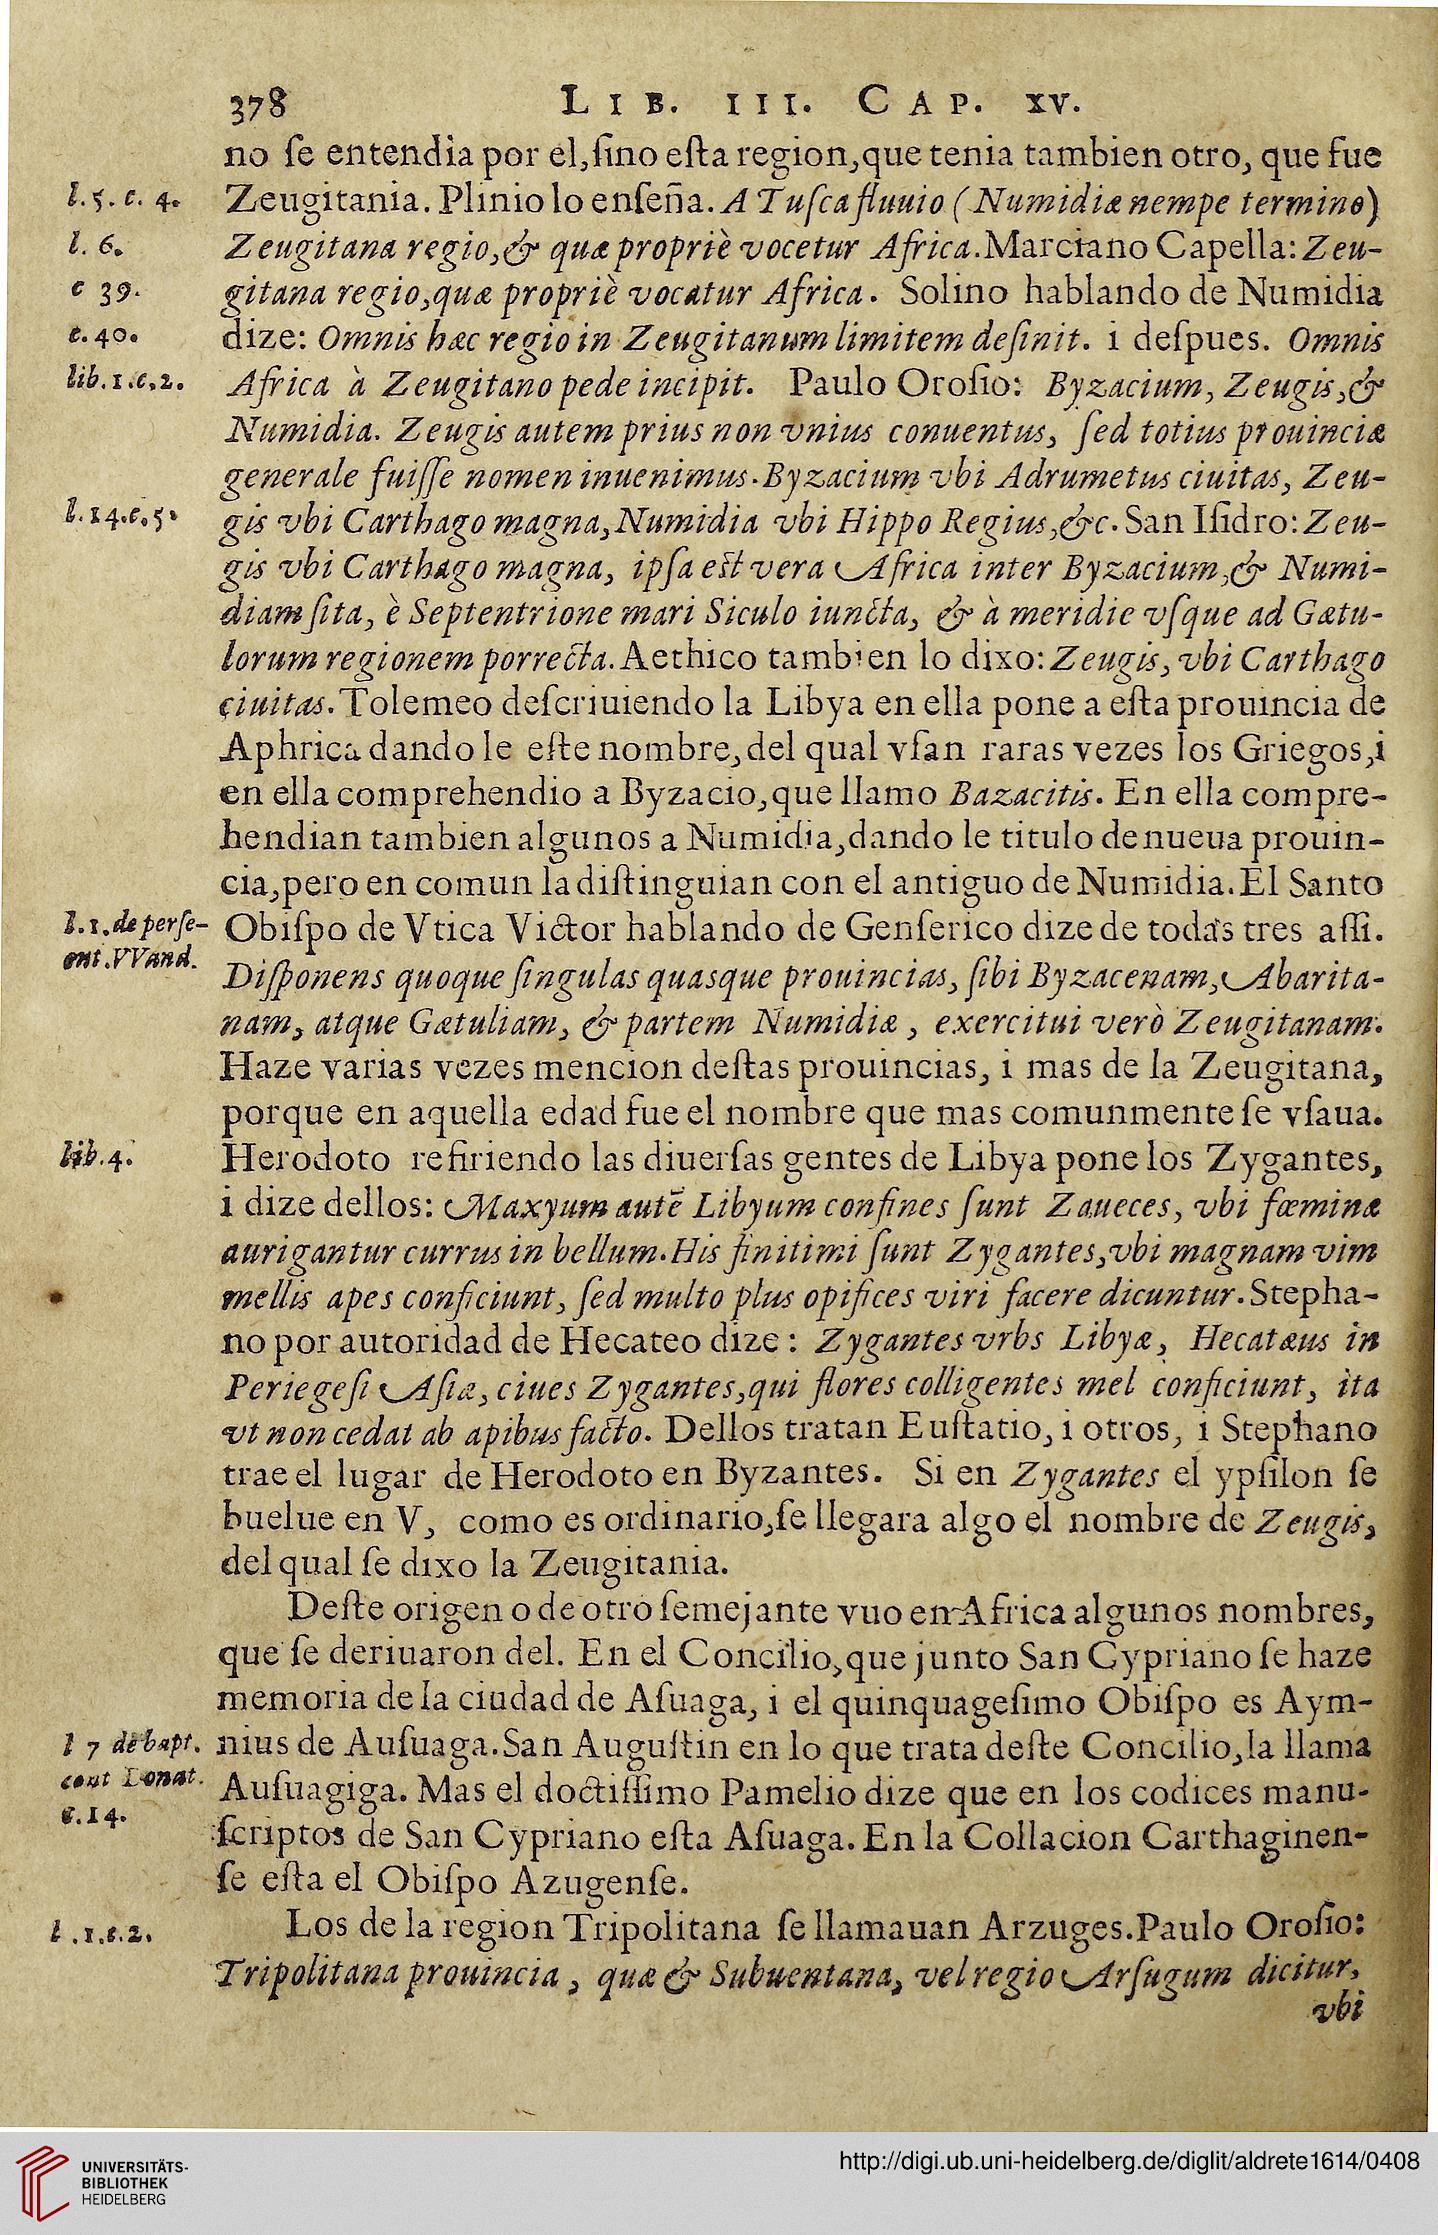 378 LIB. III. CAP. XV.
no ſe entendia por el, ſino eſta region, que tenia tambien otro, que fue
l. 5. c. 4. Zeugitania. Plinio lo enſeña. A Tuſca fluuio (Numidiæ nempe termino)
l. 6. Zeugitana regio, & quæ propriè vocetur Africa. Marciano Capella: Zeu-
c 39. gitana regio, quæ propriè vocatur Africa. Solino hablando de Numidia
c. 40. dize: Omnis hæc regio in Zeugitanum limitem deſinit. i deſpues. Omnis
lib. 1. c. 2. Africa à Zeugitano pede incipit. Paulo Oroſio: Byzacium, Zeugis, &
Numidia. Zeugis autem prius non vnius conuentus, ſed totius prouinciæ
generale fuiſſe nomen inuenimus. Byzacium vbi Adrumetus ciuitas, Zeu-
l. 14. c. 5. gis vbi Carthago magna, Numidia vbi Hippo Regius, &c. San Iſidro: Zeu-
gis vbi Carthago magna, ipſa eſt vera Africa inter Byzacium, & Numi-
diam ſita, è Septentrione mari Siculo iuncta, & à meridie vſque ad Gætu-
lorum regionem porrecta. Aethico tambien lo dixo: Zeugis, vbi Carthago
ciuitas. Tolemeo deſcriuiendo la Libya en ella pone a eſta prouincia de
Aphrica dando le eſte nombre, del qual vſan raras vezes los Griegos, i
en ella comprehendio a Byzacio, que llamo Bazacitis. En ella compre-
hendian tambien algunos a Numidia, dando le titulo de nueua prouin-
cia, pero en comun la diſtinguian con el antiguo de Numidia. El Santo
l. 1. de perſe- Obiſpo de Vtica Victor hablando de Genſerico dize de todas tres aſſi.
cut. VVand. Diſponens quoque ſingulas quasque prouincias, ſibi Byzacenam, Abarita-
nam, atque Gætuliam, & partem Numidiæ, exercitui verò Zeugitanam.
Haze varias vezes mencion deſtas prouincias, i mas de la Zeugitana,
porque en aquella edad fue el nombre que mas comunmente ſe vſaua.
lib. 4. Herodoto refiriendo las diuerſas gentes de Libya pone los Zygantes,
i dize dellos: Maxyum autẽ Libyum confines ſunt Zaueces, vbi fœminæ
aurigantur currus in bellum. His finitimi ſunt Zygantes, vbi magnam vim
mellis apes conficiunt, ſed multo plus opifices viri facere dicuntur. Stepha-
no por autoridad de Hecateo dize: Zygantes vrbs Libyæ, Hecatæus in
Periegeſi Aſiæ, ciues Zygantes, qui flores colligentes mel conficiunt, ita
vt non cedat ab apibus facto. Dellos tratan Euſtatio, i otros, i Stephano
trae el lugar de Herodoto en Byzantes. Si en Zygantes el ypſilon ſe
buelue en V, como es ordinario, ſe llegara algo el nombre de Zeugis,
del qual ſe dixo la Zeugitania.
Deſte origen o de otro ſemejante vuo en Africa algunos nombres,
que ſe deriuaron del. En el Concilio, que junto San Cypriano ſe haze
memoria de la ciudad de Aſuaga, i el quinquageſimo Obiſpo es Aym-
l 7 de bapt. nius de Auſuaga. San Auguſtin en lo que trata deſte Concilio, la llama
cont Donat. Auſuagiga. Mas el doctiſſimo Pamelio dize que en los codices manu-
c. 14. ſcriptos de San Cypriano eſta Aſuaga. En la Collacion Carthaginen-
ſe eſta el Obiſpo Azugenſe.
l. 1. c. 2. Los de la region Tripolitana ſe llamauan Arzuges. Paulo Oroſio:
Tripolitana prouincia, quæ & Subuentana, vel regio Arſugum dicitur,
vbi
UNIVERSITÄTS-
BIBLIOTHEK
HEIDELBERG
http://digi.ub.uni-heidelberg.de/diglit/aldrete1614/0408